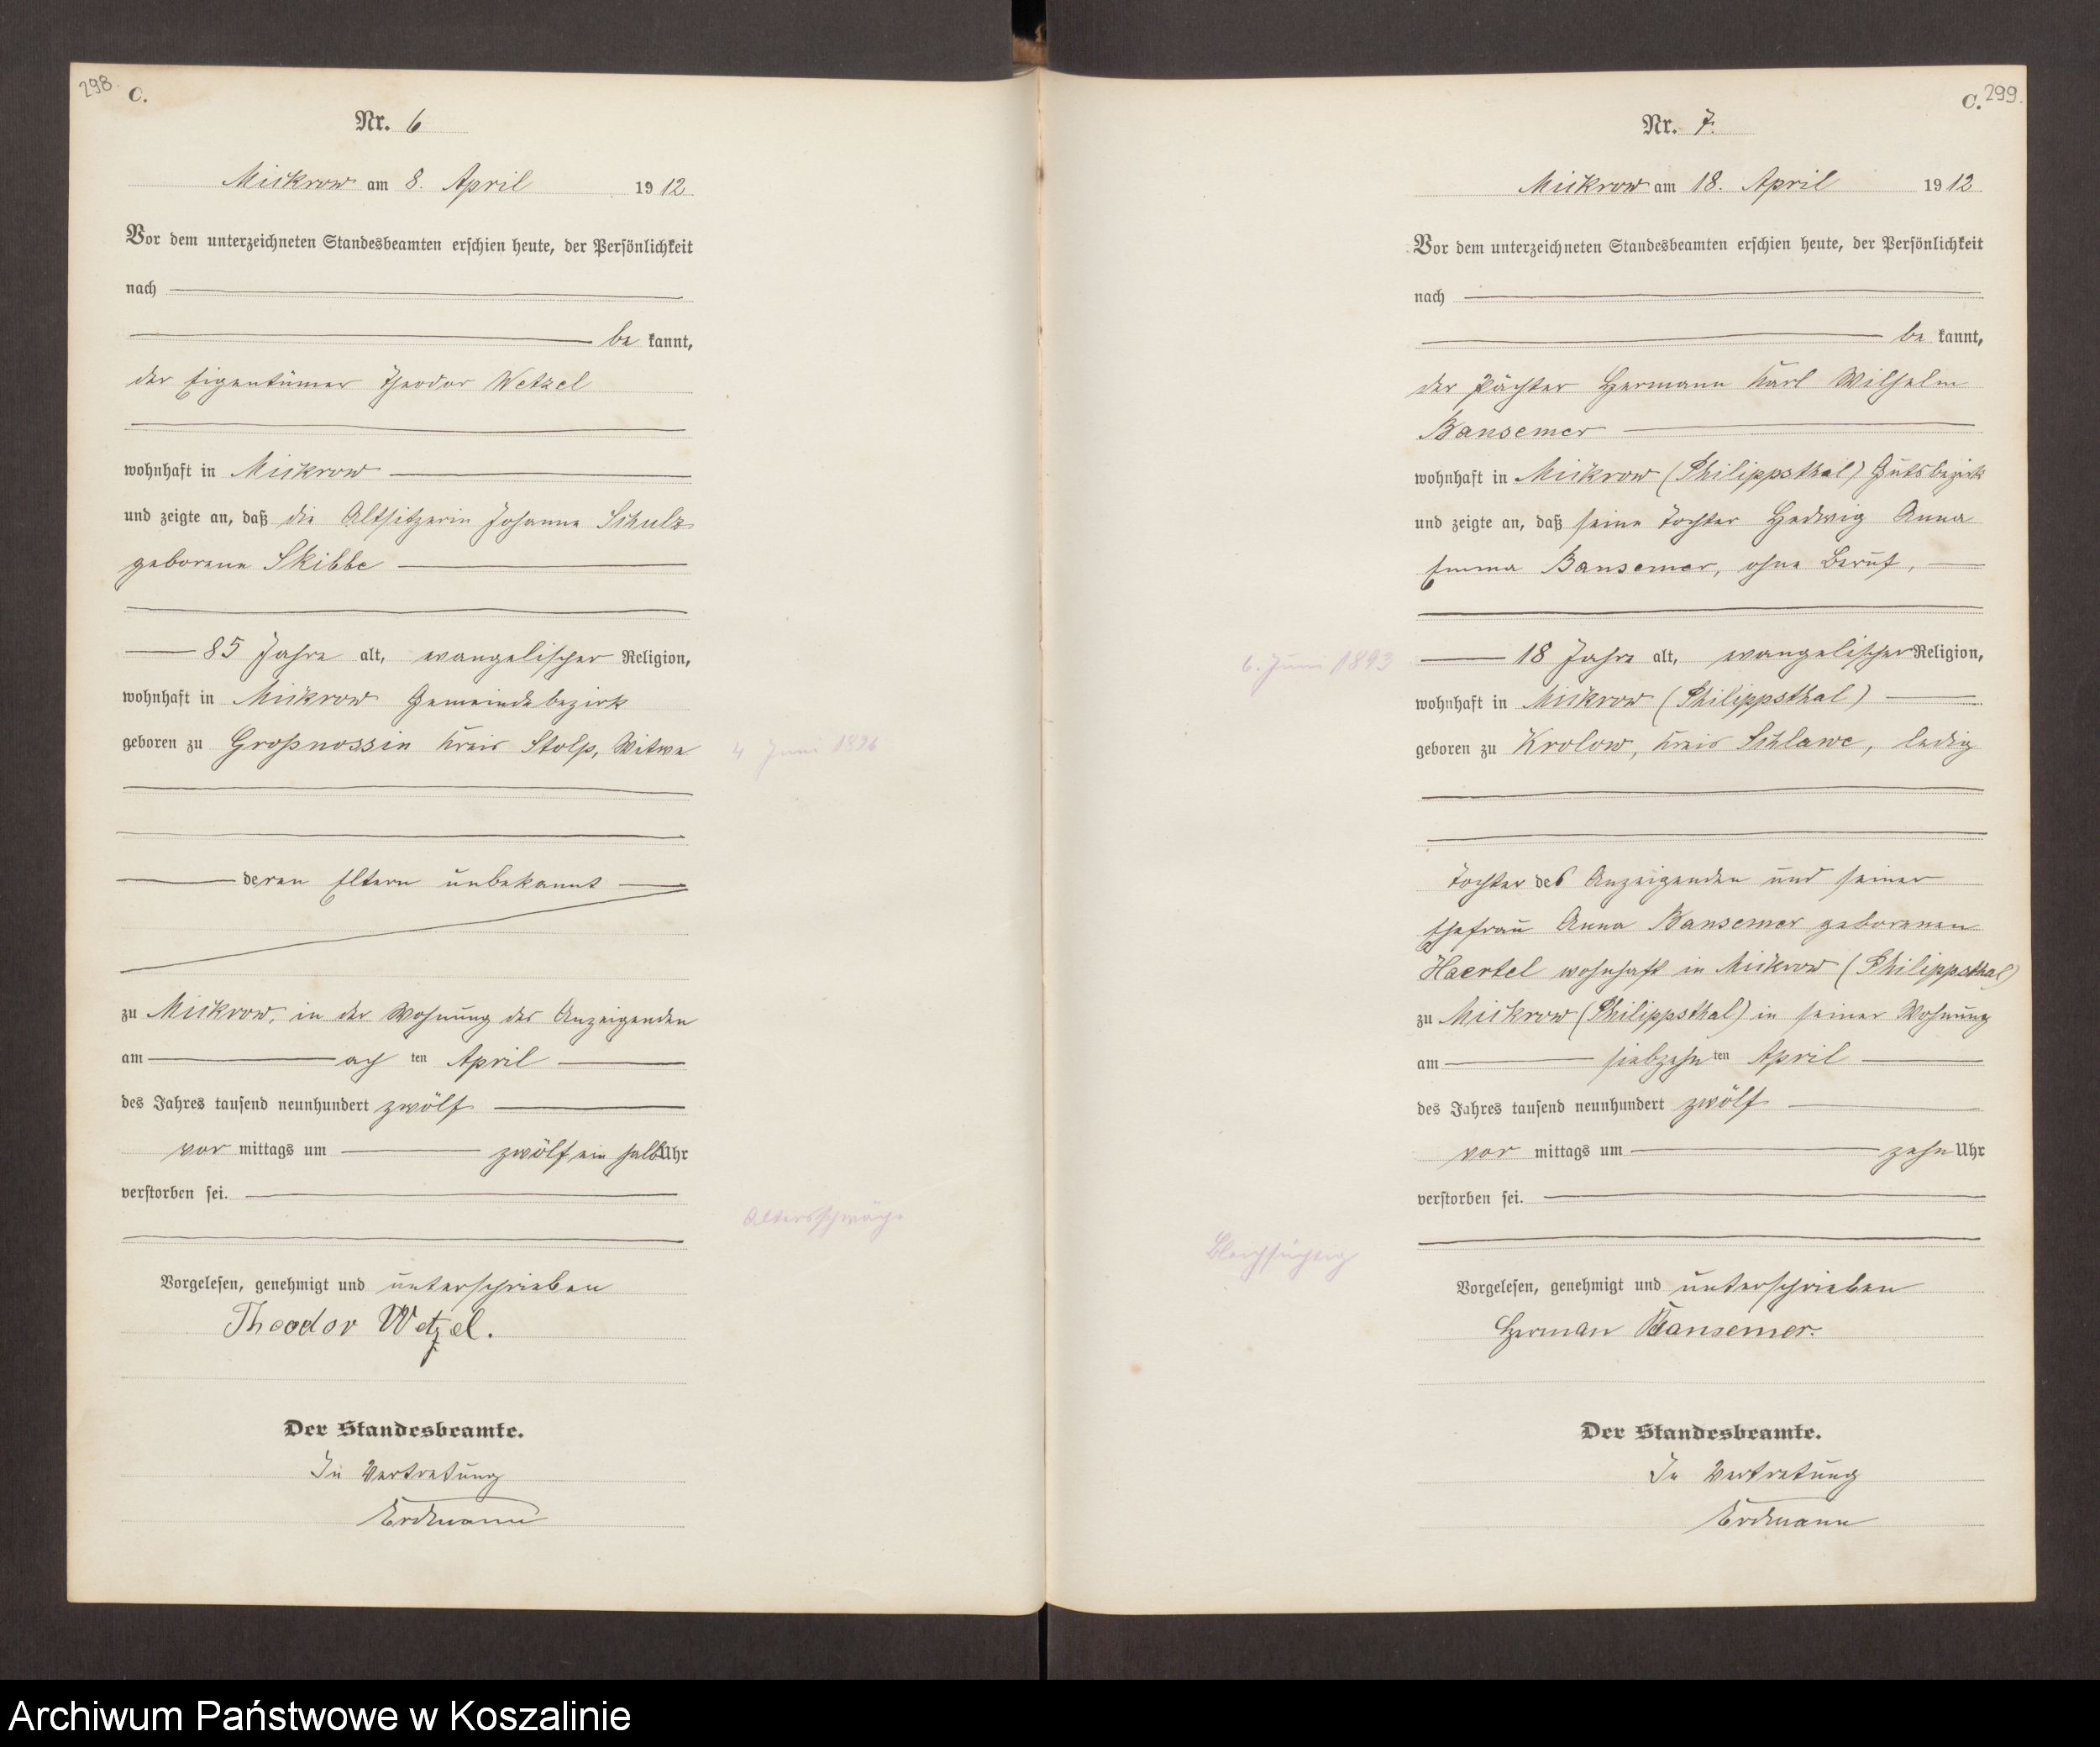 298.
C.
Nr. 6
Mickrow am 8. April 1912
Vor dem unterzeichneten Standesbeamten erschien heute, der Persönlichkeit
nach
be kannt,
der Eigentümer Theodor Wetzel
wohnhaft in Mickrow
und zeigte an, daß die Altsitzerin Johanne Schulz
geborene Skibbe
85 Jahre alt, evangelischer Religion,
wohnhaft in Mickrow Gemeindebezirk
geboren zu Großnossin Kreis Stolp, Witwe
4 Juni
deren Eltern unbekannt
zu Mickrow, in der Wohnung des Anzeigenden
am ach ten April
des Jahres tausend neunhundert zwölf
vor mittags um zwölf ein halb Uhr
verstorben sei.
Altersschwäche
Vorgelesen, genehmigt und unterschrieben
Theodor Wetzel.
Der Standesbeamte.
In Vertretung
Erdmann
C. 299.
Nr. 7.
Mickrow am 18. April 1912
Vor dem unterzeichneten Standesbeamten erschien heute, der Persönlichkeit
nach
be kannt,
der Pächter Hermann Karl Wilhelm
Bansemer
wohnhaft in Mickrow (Philippsthal) Gutsbezirk
und zeigte an, daß seine Tochter Hedwig Anna
Emma Bansemer, ohne Beruf,
6. Juni 1893
18 Jahre alt, evangelischer Religion,
wohnhaft in Mickrow (Philippsthal)
geboren zu Krolow, Kreis Schlawe, ledig
Tochter des Anzeigenden und seiner
Ehefrau Anna Bansemer geborenen
Haertel wohnhaft in Mickrow (Philippsthal)
zu Mickrow (Philippsthal) in seiner Wohnung
am siebzehn ten April
des Jahres tausend neunhundert zwölf
vor mittags um zehn Uhr
verstorben sei.
Bleichsüchtig
Vorgelesen, genehmigt und unterschrieben
Herman Bansemer.
Der Standesbeamte.
In Vertretung
Erdmann
Archiwum Państwowe w Koszalinie